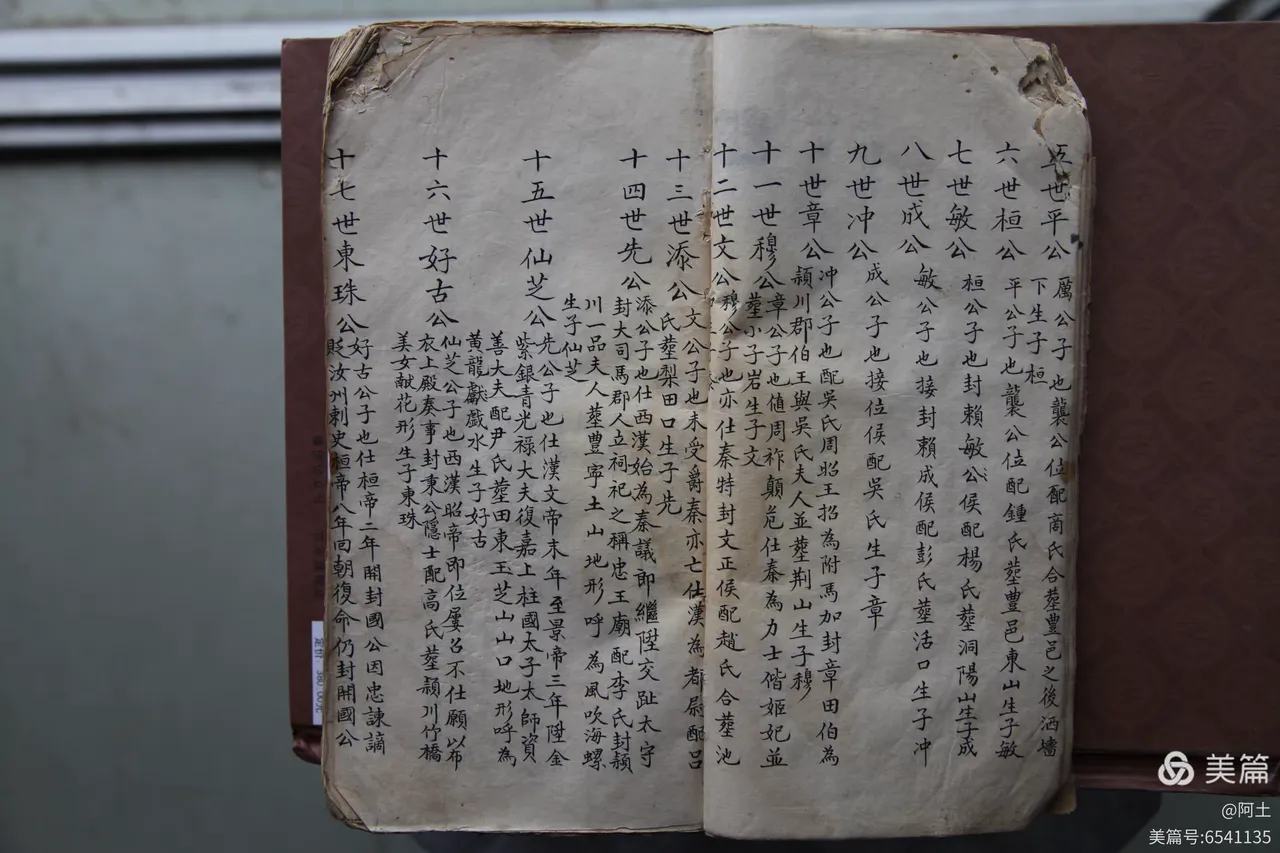 五世平公 厲公子也襲公位配商氏合塟豊邑之後酒墻
下生子桓
六世桓公 平公子也襲公位配鍾氏塟豊邑東山生子敏
七世敏公 桓公子也封賴敏公侯配楊氏塟洞陽山生子成
八世成公 敏公子也接封賴成侯配彭氏塟活口生子冲
九世冲公 成公子也接位侯配吳氏生子章
十世章公 冲公子也配吳氏周昭王招為附馬加封章田伯為
頴川郡伯王與吳氏夫人並塟荆山生子穆
十一世穆公 章公子也値周祚顛危仕秦為力士偕姬妃並
塟小子岩生子文
十二世文公 穆公子也亦仕秦特封文正侯配趙氏合塟池
十三世添公 文公子也未受爵秦亦亡仕漢為都尉配呂
氏塟梨田口生子先
十四世先公 添公子也仕西漢始為秦議郎繼陞交趾太守
封大司馬郡人立祠祀之稱忠王廟配李氏封頴
川一品夫人塟豊寧土山地形呼為風吹海螺
生子仙芝
十五世仙芝公 先公子也仕漢文帝末年至景帝三年陞金
紫銀青光禄大夫復嘉上柱國太子太師資
善大夫配尹氏塟田東玉芝山山口地形呼為
黄龍獻戲水生子好古
十六世好古公 仙芝公子也西漢昭帝即位屢召不仕願以布
衣上殿奏事封東公隱士配高氏塟頴川竹橋
美女献花形生子東珠
十七世東珠公 好古公子也仕桓帝二年開封國公因忠諫謫
貶汝州剌史桓帝八年囘朝復命仍封開國公
美篇
@阿土
美篇号:6541135